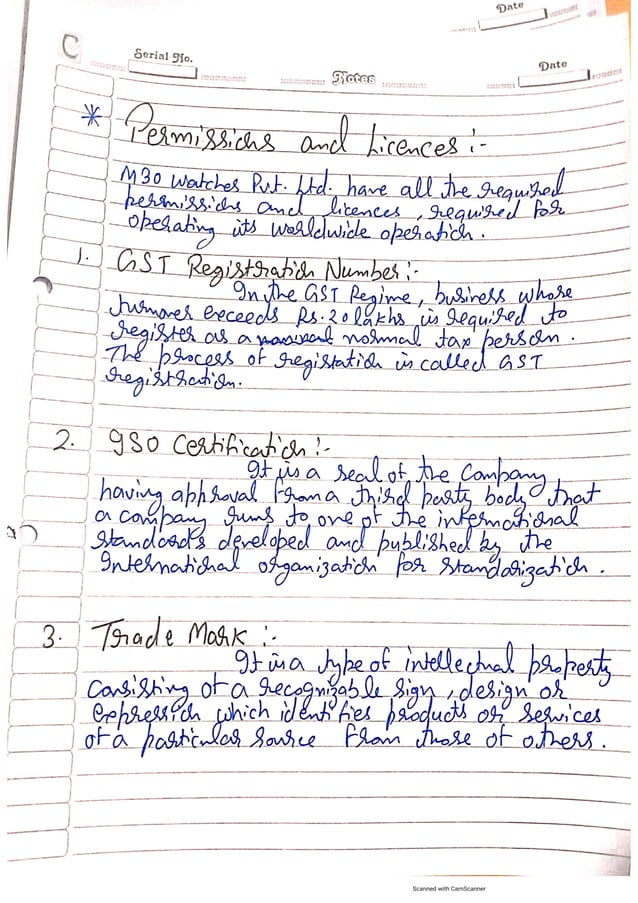 Date
C
Serial No.
Notes
Date
* Permissions and Licences :-
M30 Watches Pvt. Ltd. have all the required
permissions and licences, required for
operating its worldwide operation.
1. GST Registration Number :-
In the GST Regime, business whose
turnover exceeds Rs. 20 lakhs is required to
register as a normal tax person.
The process of registation is called GST
registration.
2. ISO Certification :-
It is a seal of the Company
having approval from a third party body that
a company runs to one of the international
standards developed and published by the
International organization for Standarization.
3. Trade Mark :-
It is a type of intellectual property
Consisting of a recognizable sign, design or
expression which identifies products or services
of a particular source from those of others.
Scanned with CamScanner